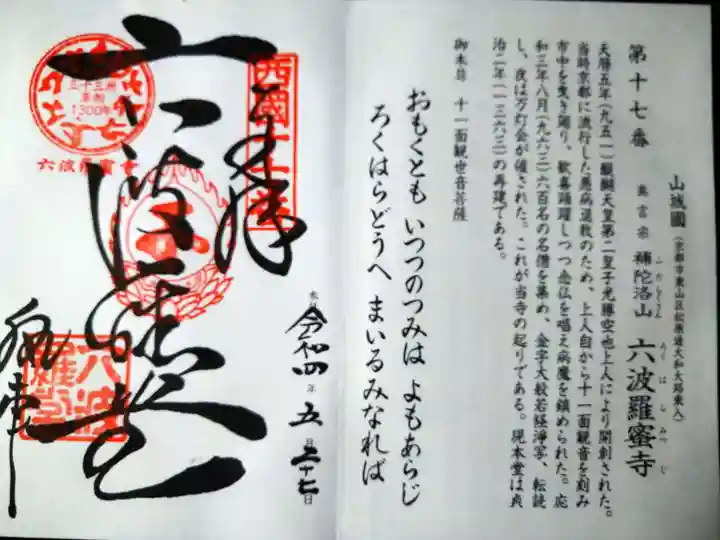 第十七番
山城國 (京都市東山区松原通大和大路東入)
真言宗 補陀洛山 六波羅蜜寺
ふだらくさん ろくはらみつじ
天暦五年(九五一)醍醐天皇第二皇子光勝空也上人により開創された。
当時京都に流行した悪病退散のため、上人自から十一面観音を刻み
市中を曳き廻り、歓喜踊躍しつつ念仏を唱え病魔を鎮められた。応
和三年八月(九六三)六百名の名僧を集め、金字大般若経浄写、転読
し、夜は万灯会が催された。これが当寺の起りである。現本堂は貞
治二年(一三六三)の再建である。
御本尊 十一面観世音菩薩
おもくとも いつつのつみは よもあらじ
ろくはらどうへ まいるみなれば
奉拝
西國十七番
六波羅蜜寺
令和四年五月二十七日
五十三州
草創
1300年